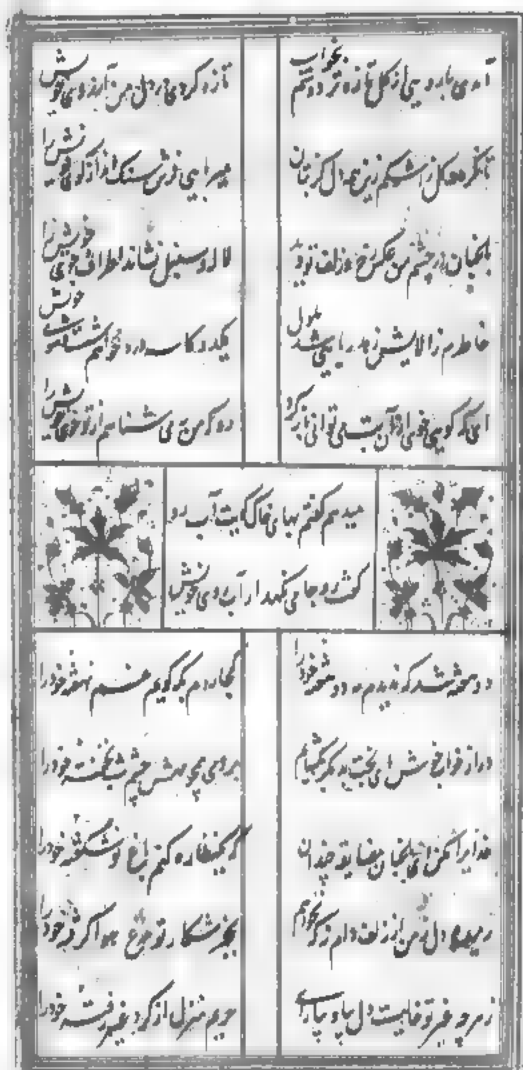 آمدی با رویی از گل تازه تر دوشم بخواب تازه کردی در دل من آرزوی خویش را
تا نگردد گل ز اشکم زین همه دل کز بتان میربایی فرش سنگ انداز کوی خویش را
باغبان در چشم من عکس رخ و زلف تو دید لاله و سنبل نشاند اطراف جوی خویش را
خاطرم ز آلایش زهد ریایی شد ملول یکدو کاسه درد خواهم شست و شوی خویش
ای که گویی خوی از آن بت می توانی باز کرد رو که من به می شناسم از تو خوی خویش را
میدهم گفتم بهای خاک پایت آب رو
گفت رو جامی نگهدار آب روی خویش
دو هفته شد که ندیدم مه دو هفته خود را کجا روم بکه گویم غم نهفته خود را
ای بخت بد که چشم شب نخفته خود را
خدایرا مکن ای باغبان مضایقه چندان که یک نظاره کنم باغ نو شکفته خود را
رمیده دل ز من از زلف دام خواهم بجز شکار تو مرغ هوا گرفته خود را
ز هر چه غیر تو خالیست دل بیا و حریم منزل از گرد غیر رفته خود را